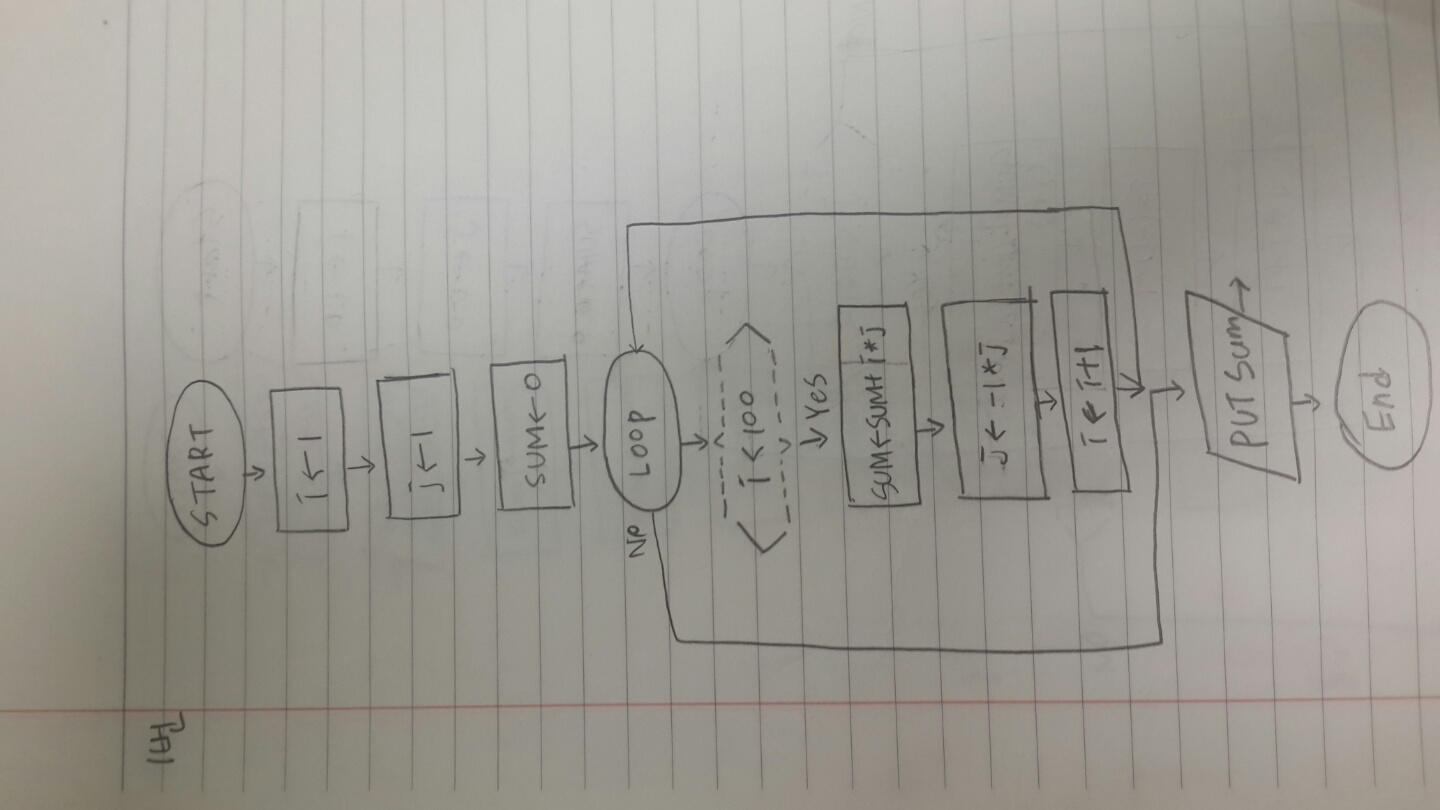 START
i ← 1
j ← 1
SUM ← 0
LOOP
NO
i < 100
Yes
SUM ← SUM + i * j
j ← -1 * j
i ← i + 1
PUT SUM
End